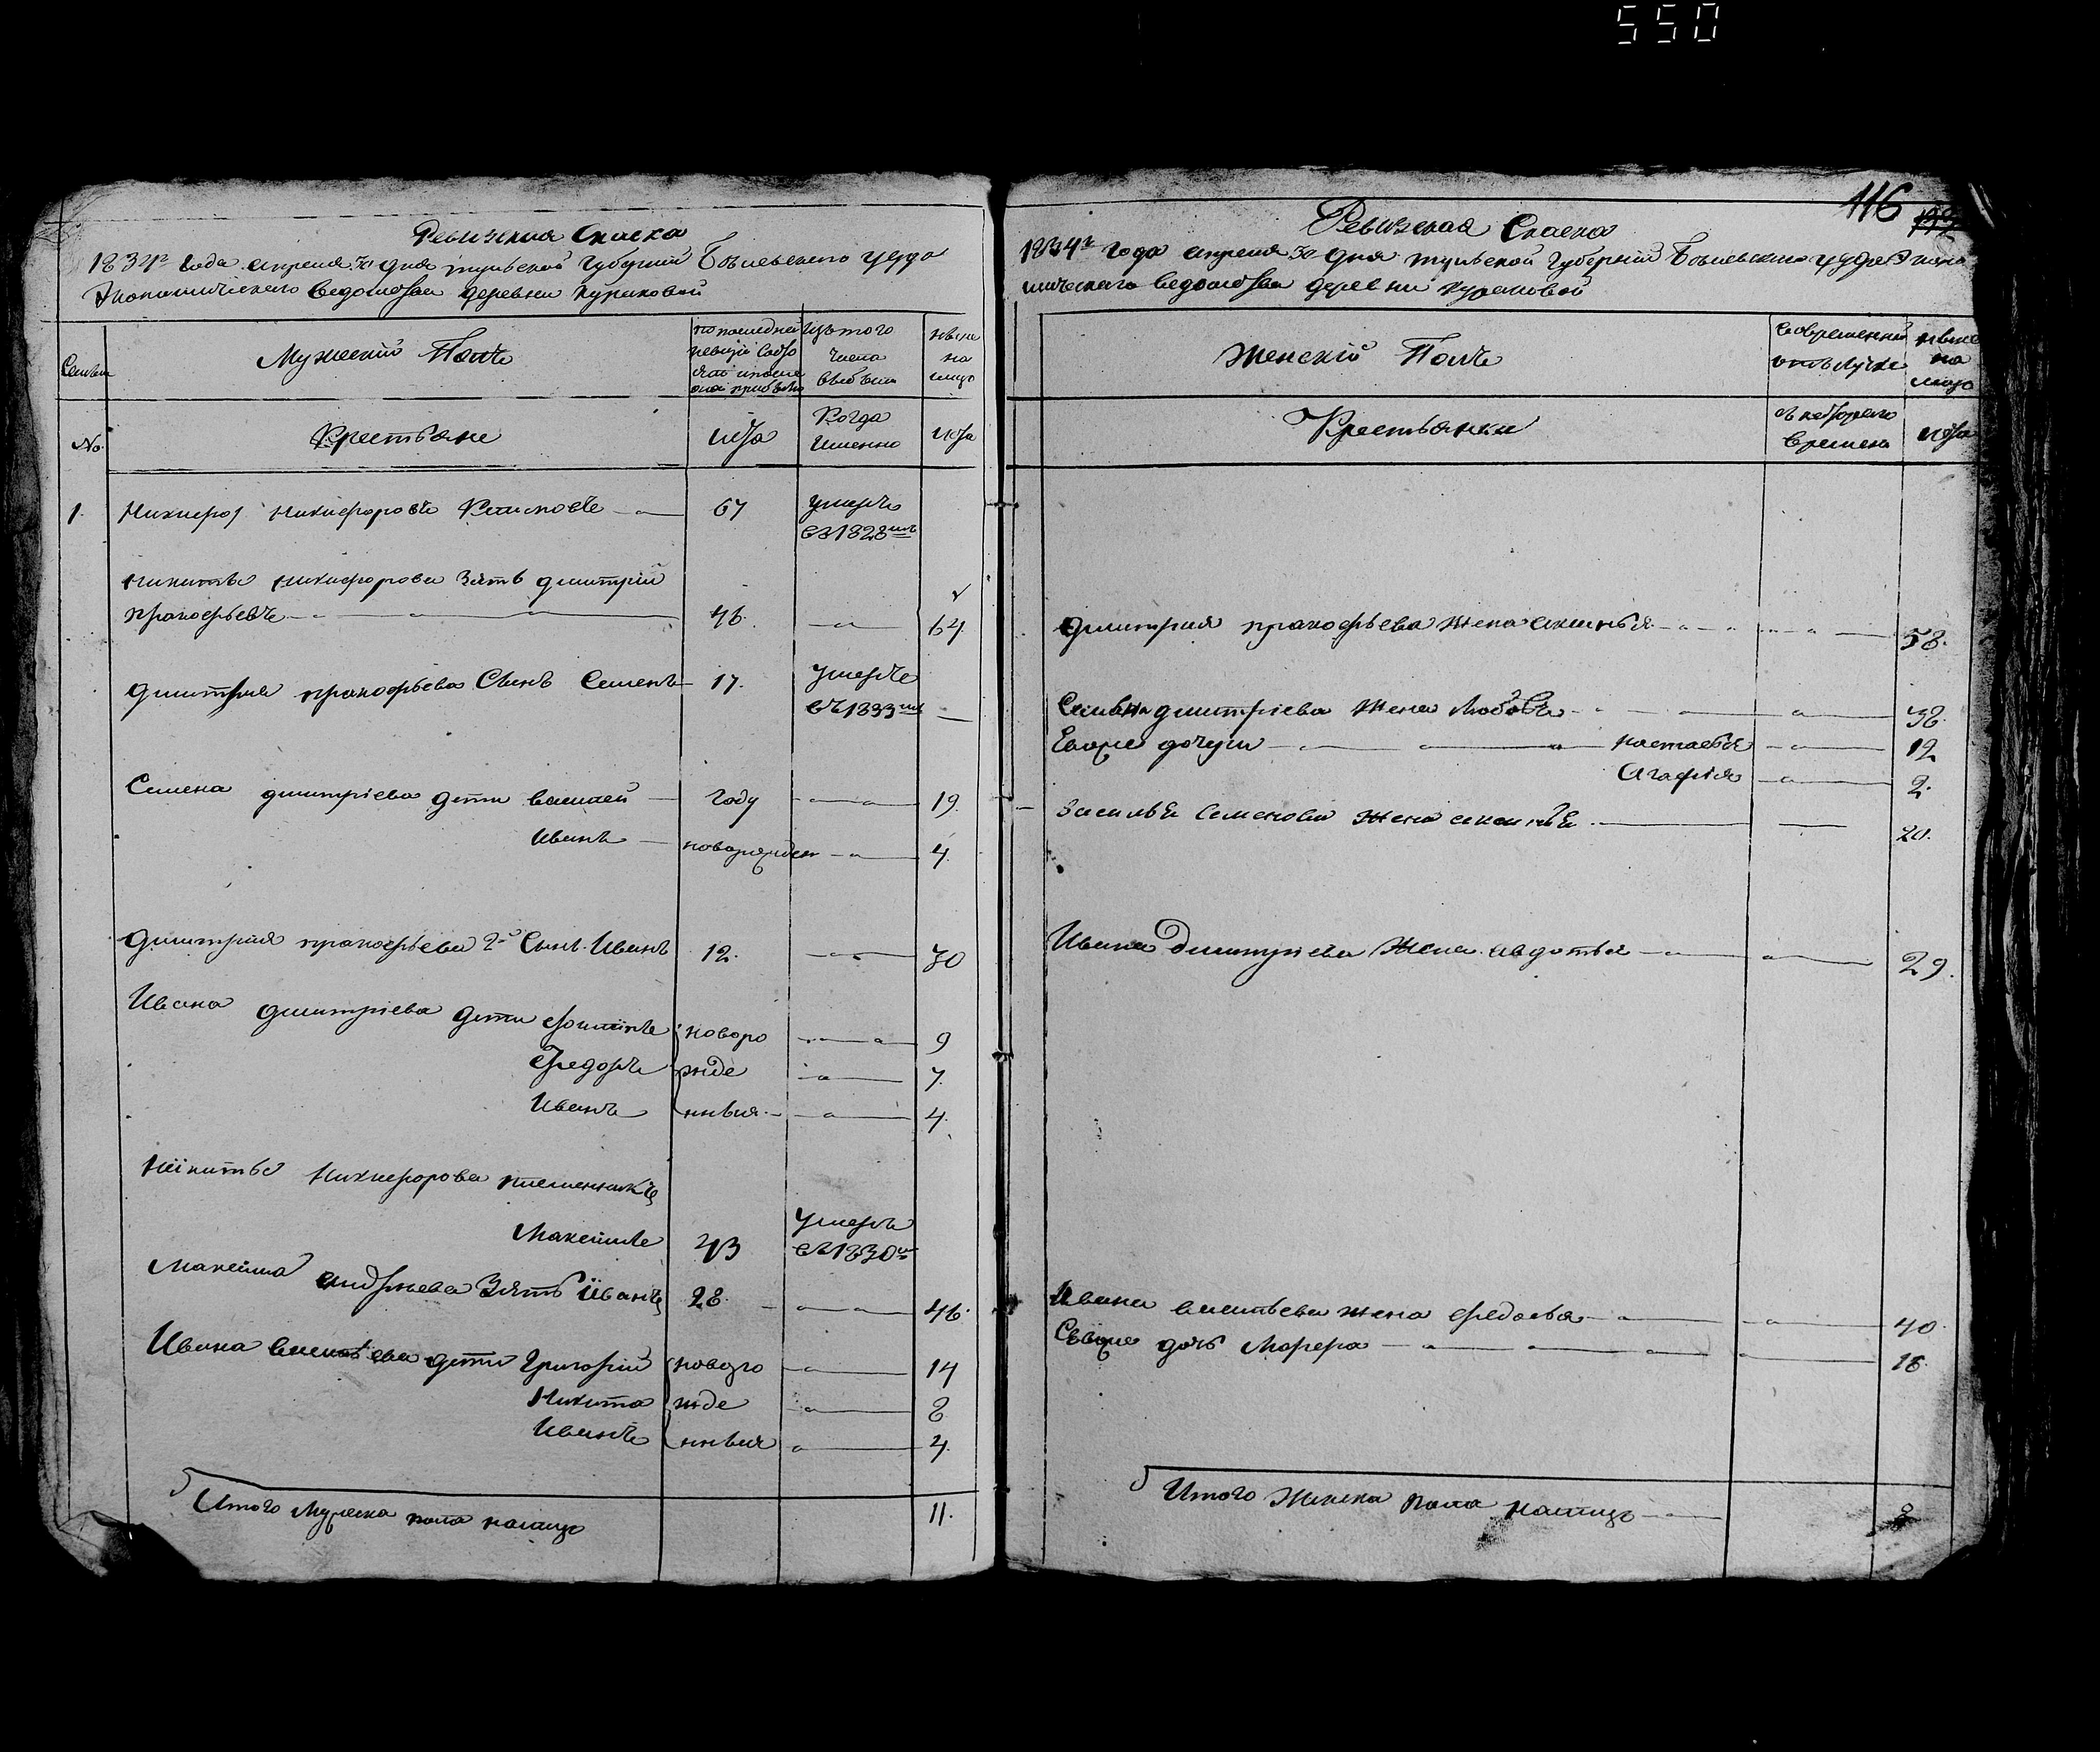 550
116
Ревизская Сказка
1834го года апреля 30 дня тульской Губернии Бѣлевского уезда
Экономического ведомства деревни Куриковой
Семьи
Мужеский Полъ
по последней ревизии состояло и после оной прибыло
Изъ того числа выбыло
ныне на лицо
№
Крестьяне
лета
Когда Именно
лета
1. Никифоровъ 67 умеръ въ 1828мъ
Никиты Никифорова Зять дмитрий
прокофьевъ 46. 64
дмитрия прокофьева Сынъ Семенъ 17. умеръ въ 1833мъ
Семена дмитриева дети василей году 19.
Иванъ новорожден 4
дмитрия прокофьева 2й Сынъ Иванъ 12. 30
Ивана дмитриева дети новоро 9
Федоръ жде 7.
Иванъ нныя 4.
Никиты Никифорова племянникъ
Максимъ 43 умеръ въ 1830мъ
Максима андреева Зять Иванъ 28. 46.
Ивана васильева дети Григорий новоро 14
Никита жде 8
Иванъ нныя 4.
Итого Мужеска пола налицо 11.
Ревизская Сказка
1834го года апреля 30 дня тульской Губернии Бѣлевского уезда Эконо
мического ведомства деревни Куриковой
Женский Полъ
во временной отлучке
ныне на лицо
Крестьянки
съ которого Времени
лета
дмитрия прокофьева Жена аксинья 58.
Семена дмитриева Жена Любовь 38.
Евоже дочери настасья 12
Агафия 2.
Василья Семенова Жена 20.
Ивана Дмитриева Жена авдотья 29.
Ивана васильева жена федосья 40
Евоже дочь Марфа 18.
Итого Женска пола налицо 8